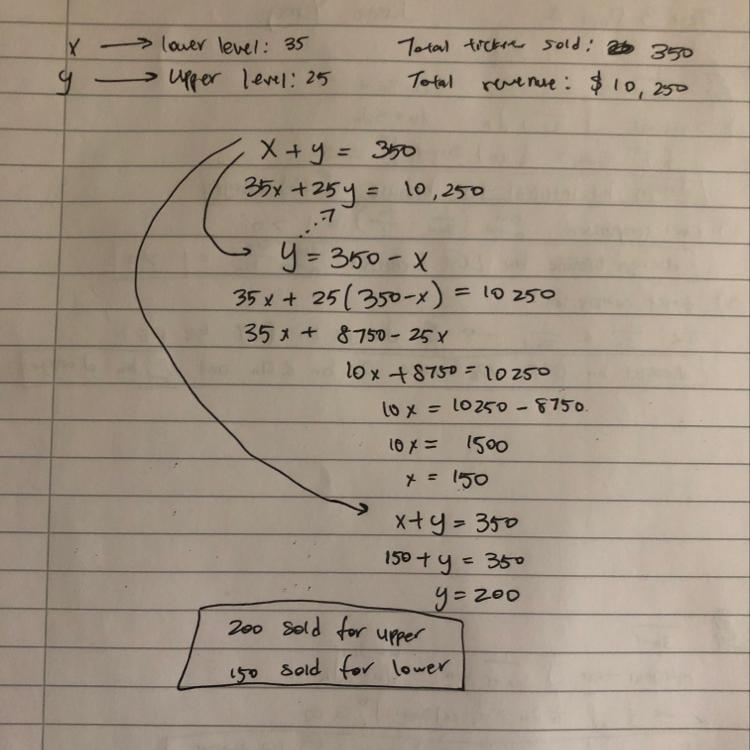 x → lower level: 35 Total tickets sold: 350
y → Upper level: 25 Total revenue: $10,250
x + y = 350
35x + 25y = 10,250
y = 350 - x
35x + 25(350-x) = 10250
35x + 8750 - 25x
10x + 8750 = 10250
10x = 10250 - 8750
10x = 1500
x = 150
x + y = 350
150 + y = 350
y = 200
200 sold for upper
150 sold for lower